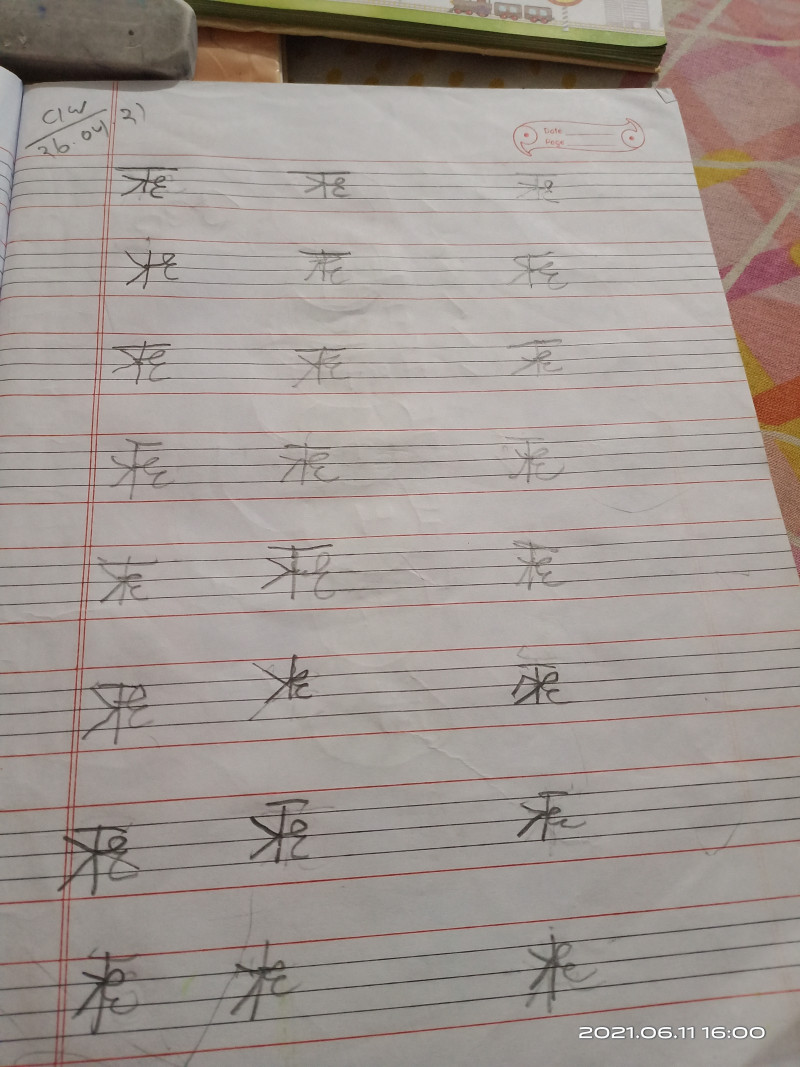 C/W
26.04 21
Date
Page
ऋ ऋ ऋ
ऋ ऋ ऋ
ऋ ऋ ऋ
ऋ ऋ ऋ
ऋ ऋ ऋ
ऋ ऋ ऋ
ऋ ऋ ऋ
ऋ ऋ ऋ
2021.06.11 16:00